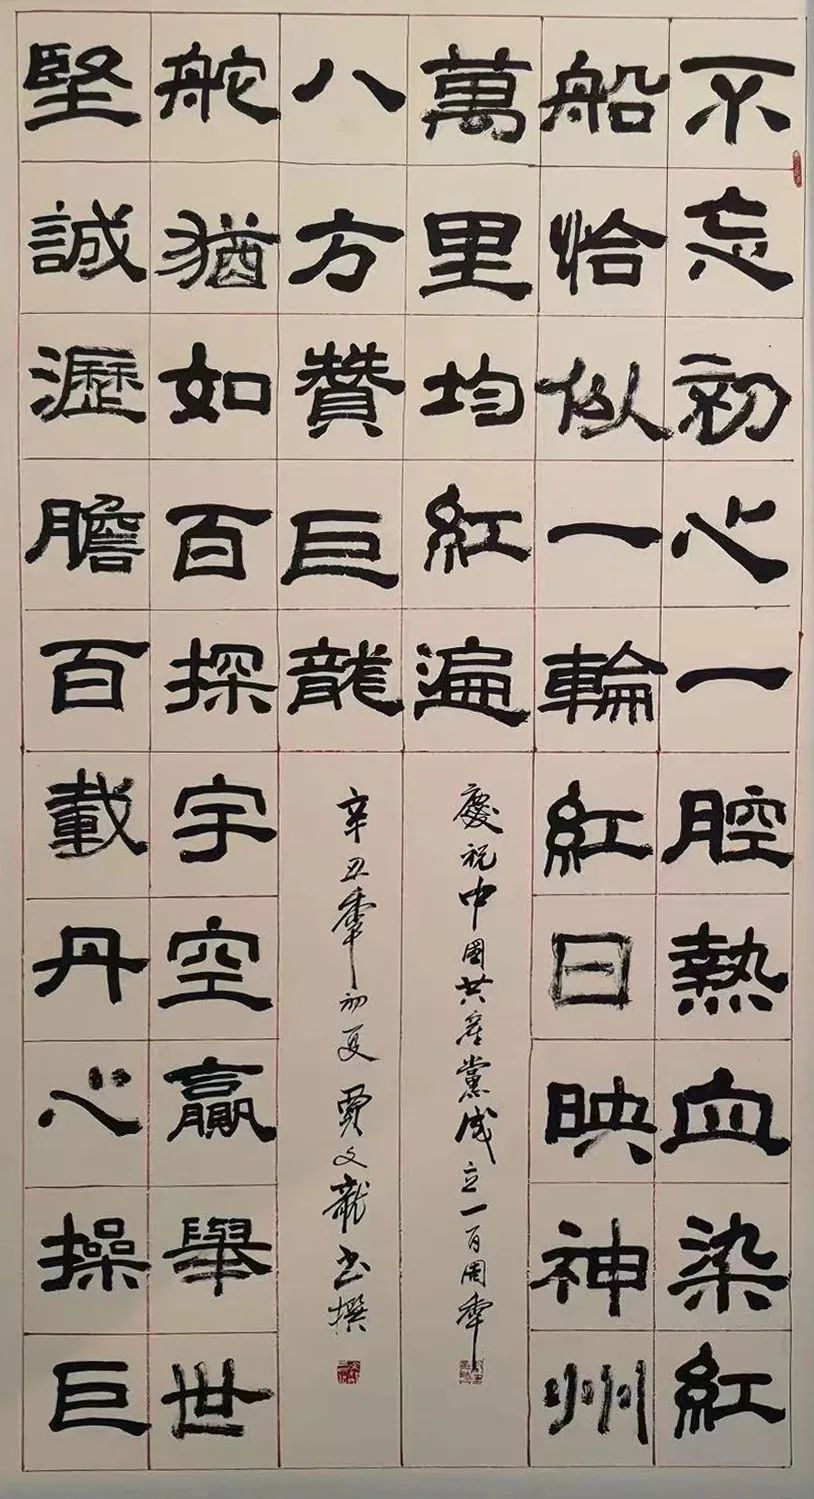 不忘初心一腔熱血染紅
船恰似一輪紅日映神州
萬里均紅遍
慶祝中國共產黨成立一百周年
堅誠瀝膽百載丹心操巨
舵猶如百探宇空贏舉世
八方贊巨龍
辛丑年初夏賈文龍書撰